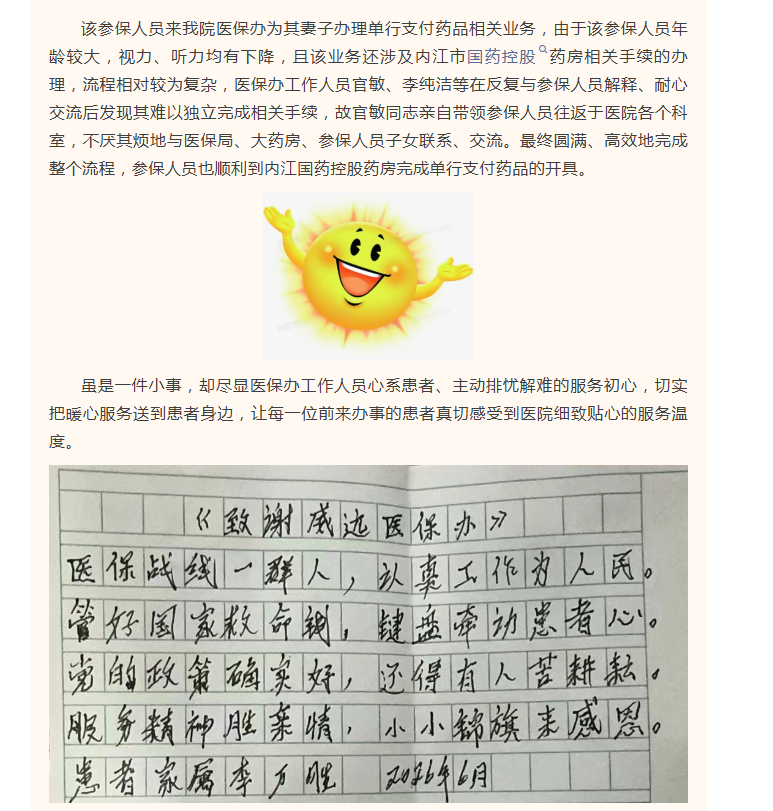 该参保人员来我院医保办为其妻子办理单行支付药品相关业务，由于该参保人员年
龄较大，视力、听力均有下降，且该业务还涉及内江市国药控股药房相关手续的办
理，流程相对较为复杂，医保办工作人员官敏、李纯洁等在反复与参保人员解释、耐心
交流后发现其难以独立完成相关手续，故官敏同志亲自带领参保人员往返于医院各个科
室，不厌其烦地与医保局、大药房、参保人员子女联系、交流。最终圆满、高效地完成
整个流程，参保人员也顺利到内江国药控股药房完成单行支付药品的开具。
虽是一件小事，却尽显医保办工作人员心系患者、主动排忧解难的服务初心，切实
把暖心服务送到患者身边，让每一位前来办事的患者真切感受到医院细致贴心的服务温
度。
《致谢威远医保办》
医保战线一群人，认真工作为人民。
管好国家救命钱，键盘牵动患者心。
党的政策确实好，还得有人苦耕耘。
服务精神胜亲情，小小锦旗来感恩。
患者家属李万胜 2026年6月